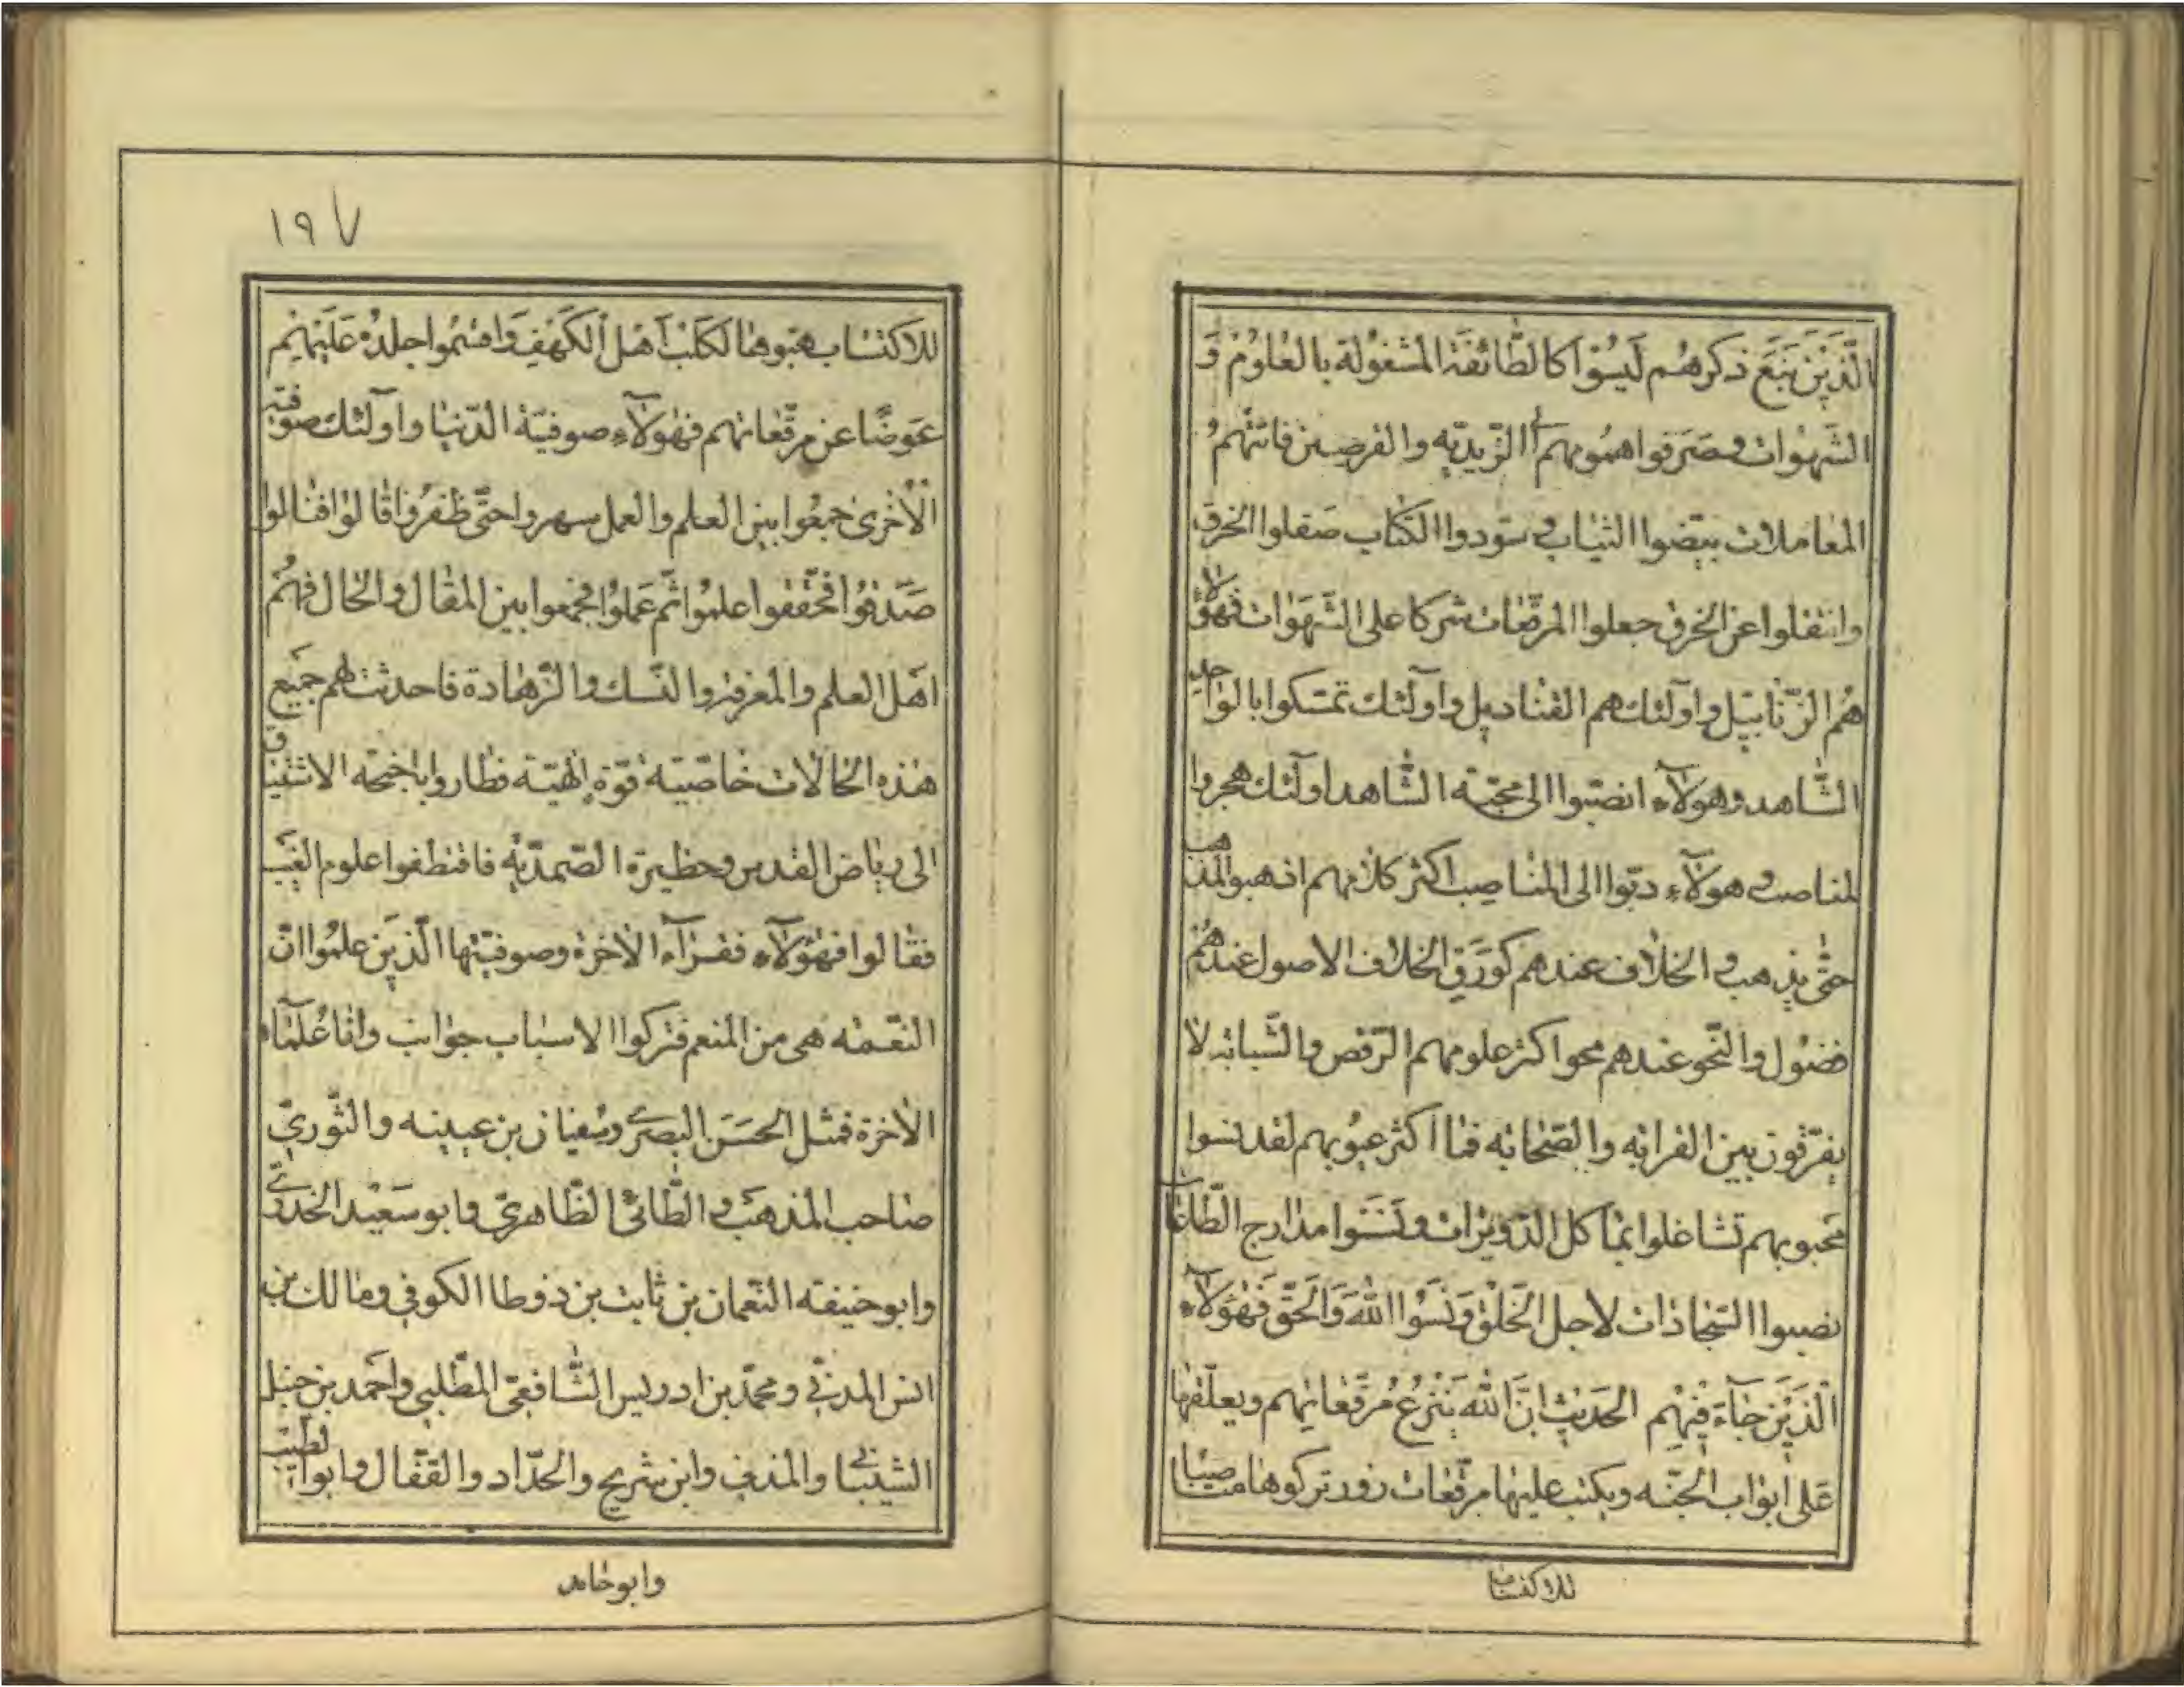 الَّذَيْنَ نَبَعَ ذكرهُم لَيسُوا كالطَّائفَة المشغوُلة بالعُلوُم وَ
الشَهوات وصَرَفوا همُومهم الى الزّبديّه والفرصين فاتتهُم
المعاملات بيّضوا الثياب و سوّدوا الكتاب صَقلوا الخرق
وانتقلوا عن الخرق جعلوا المرقّعات شركا على الشّهَوات فهؤلآ
هُم الزّنابيل واولئك هم القناديل واولئك تمسّكوا بالواحد
الشّاهد وهولآء انصبّوا الى محبّة الشّاهد اولئك هجروا
لمناصب و هولآء دبّوا الى المناصب اكثر كلامهم اذهبوا المذهب
حتّى يذهب و الخلاف عندهم كورَق الخلاف الاصول عندهُم
فضوُل والنّحو عندهم محو اكثر علومهم الرّقص والشّبابه لا
يفرّقون بين القرابه والصّحابه فما اكثر عيوُبهم لقد نسوا
محبوبهم تشاغلوا بمأكل الدّويرات ونَسَوا مدارج الطّاعات
نصبوا السّجادات لاجل الخَلْق وَنَسَوْا اللّهَ وَالحَقّ فَهؤلآء
الَّذَيْنَ جاءَ فيْهِم الحَديث انَّ اللّه يَنْزعُ مُرقّعاتهم ويعلّقها
عَلى ابوْاب الجنّه ويكتب عليها مرقّعات زور تركوها مصيبا
للاكتساب
١٩٧
للاكتساب هبوها لكلب اَهْل الكَهْف وَاقسْمُوا جلده عَلَيْهِم
عَوضًا عن مرقّعاتهم فهولآء صوفيّة الدّنيا واولئك صوفيّة
الاُخرى جمعُوا بين العلم والعمل سهروا حتّى ظفرُوا قالوا فنالوا
صَدقوُا فحقّقوا علموُا ثّم عَملوُا فجمعوا بين المقال والحال فهُم
اهَل العلم والمعرفة والنّسك والزّهادة فاحدثت لهم جَميع
هذه الحالات خاصّية قوّة الهيّة فطاروا باجنحة الاشتياق
الى رياض القدس وحظيرة الصّمديّه فاقتطفوا علوم الغَيب
فقالوا فهؤلآء فقرآء الاخرة وصوفيّتها الّذين علمُوا انّ
النّعمه هى من المنعم فتركوا الاسباب جوانب وامّا عُلماء
الاخرة فمثل الحَسَن البصرى وسُفيان بن عيينه والثّوريّ
صاحب المذهَب و الطّائى الظّاهريّ وابو سَعيْد الخدرىّ
وابو حنيفه النّعمان بن ثابت بن ذوطا الكوفى ومالك بن
انس المدنىّ ومحمّد بن ادريس الشّافعىّ المطّلبي واَحمد بن حنبل
الشيبانى والمذنى وابن شريح والحدّاد والقفّال وابو الطيّب
وابو حامد